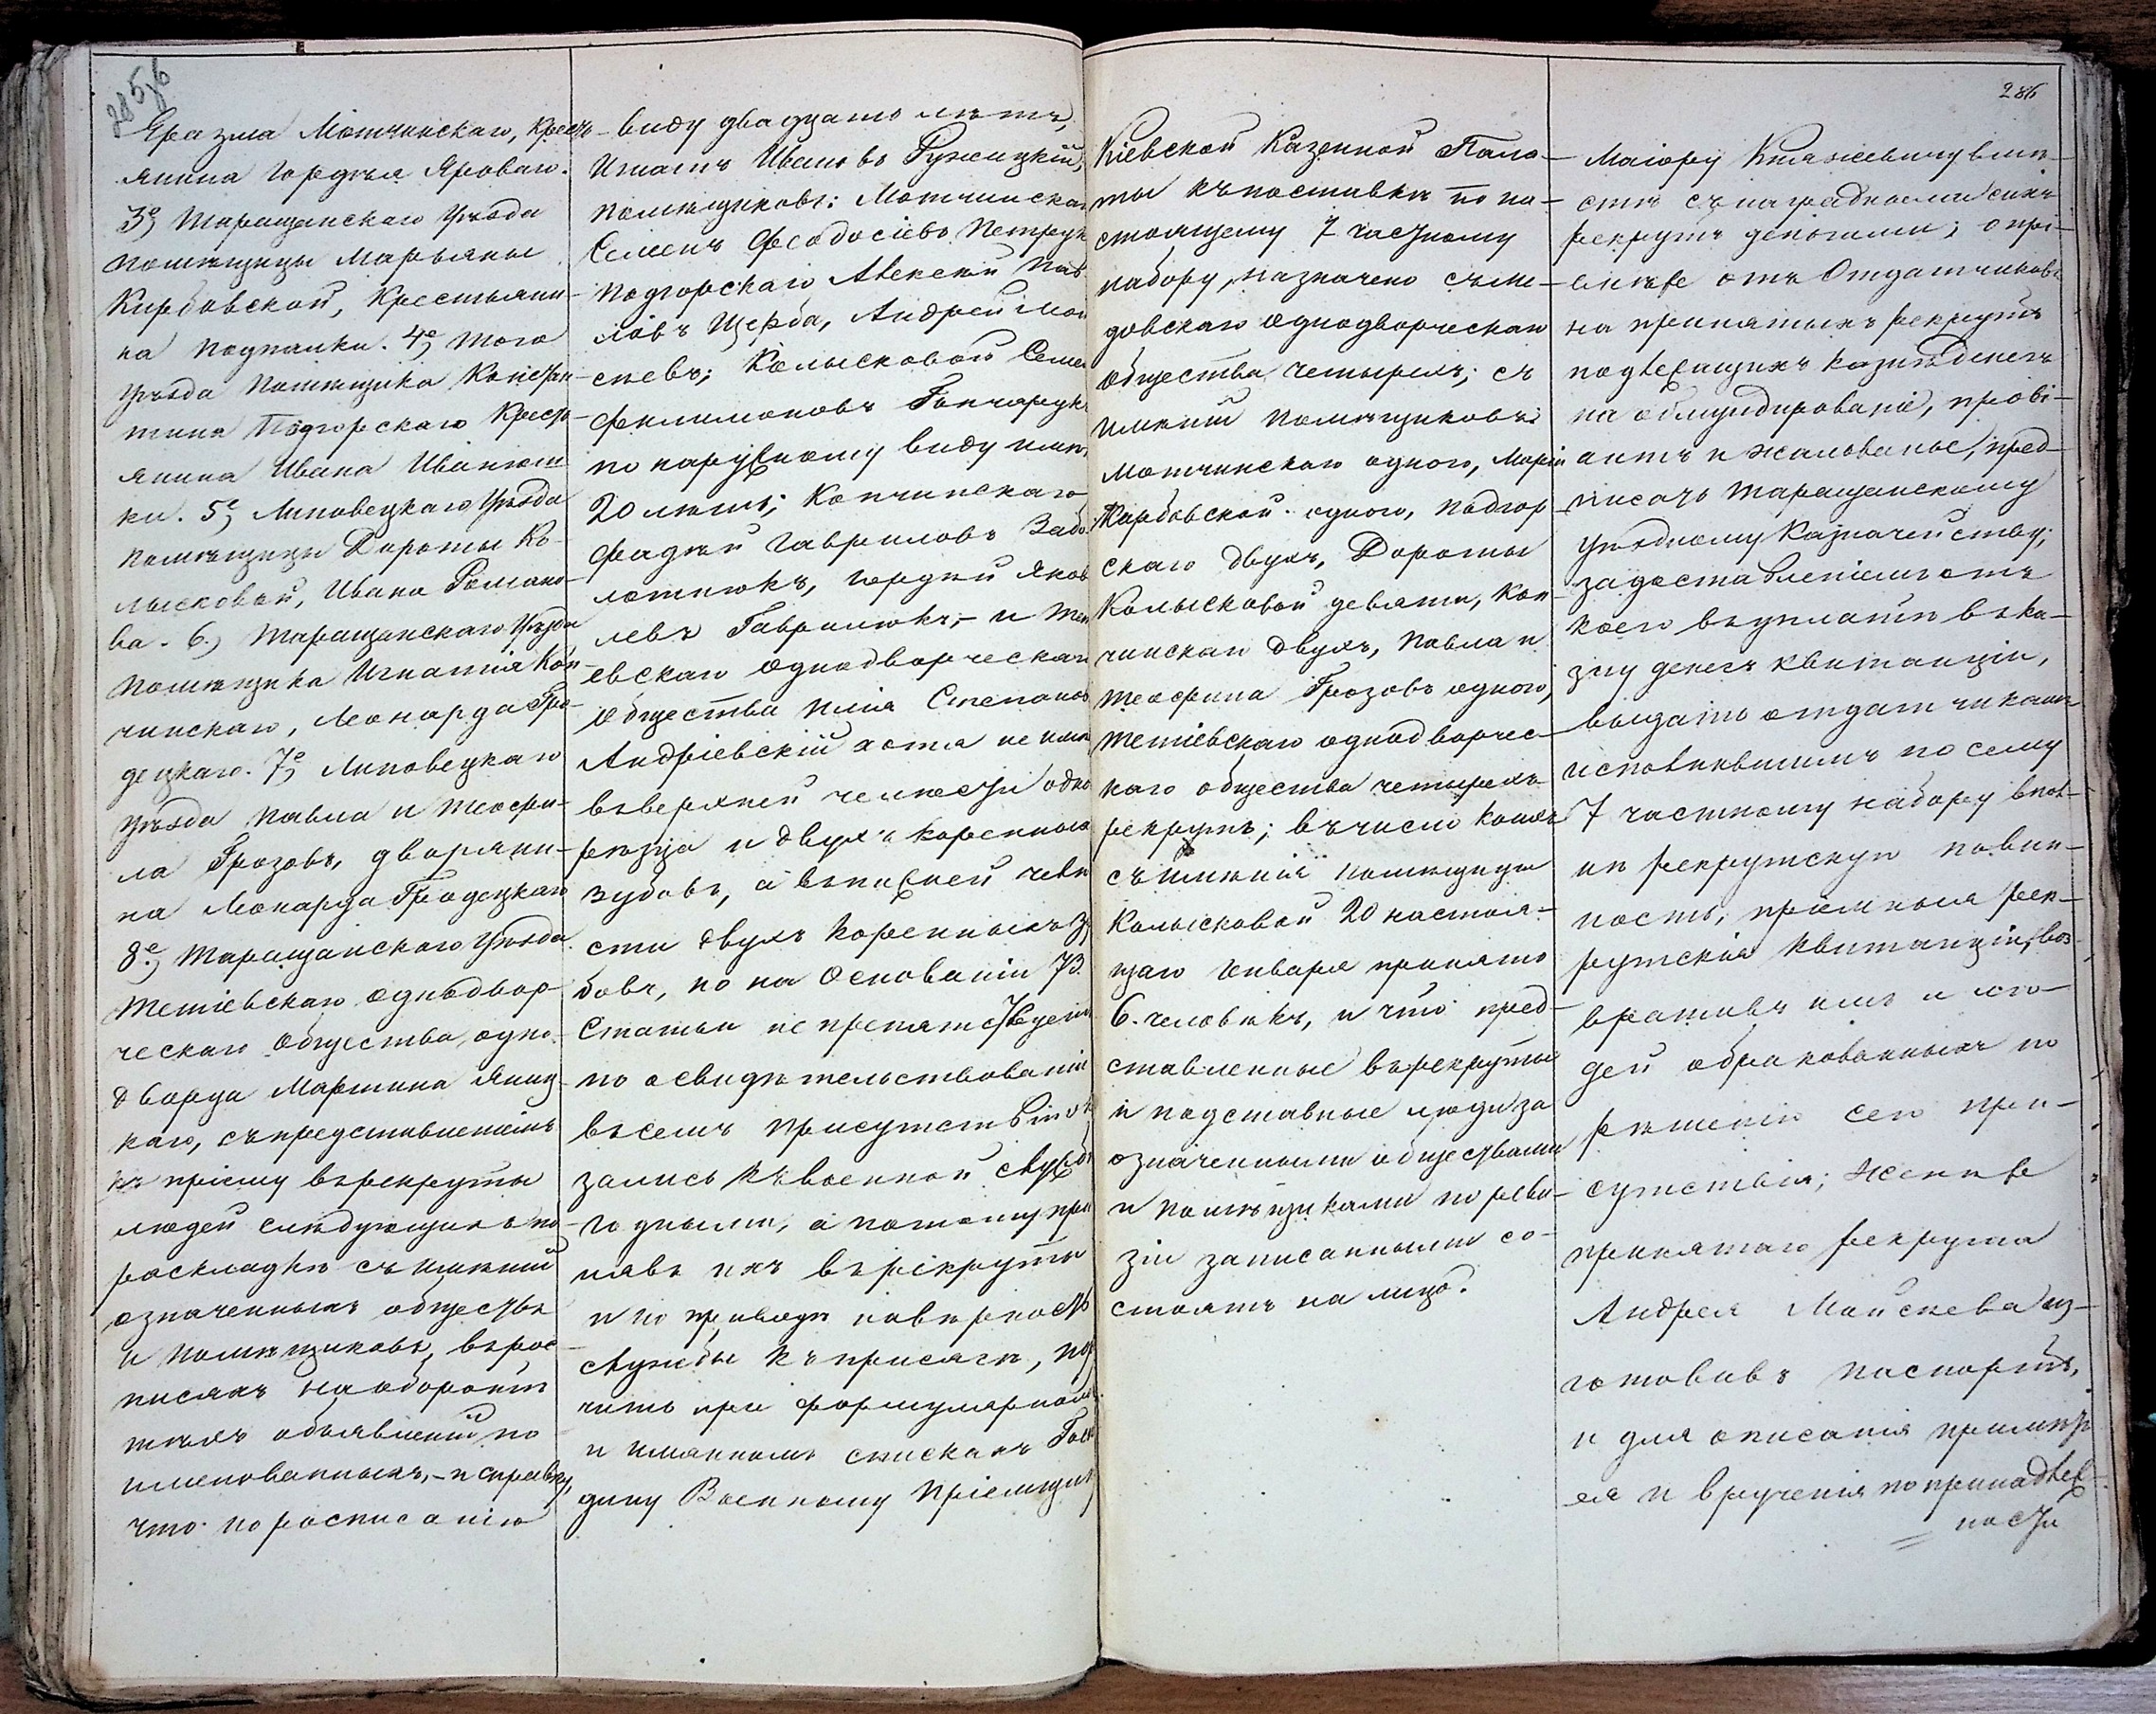 285
Яразма Мотчинскаго, Кресть-
янина Гордѣя Яроваго.
3е, Таращанскаго Уѣзда
помѣщицы Марьяны
Кирбовской, Крестьяни-
на Подпалки. 4е, того
Уѣзда Помѣщика Констан-
тина Подгорскаго Кресть-
янина Ивана Иванюш-
ки. 5е, Липовецкаго Уѣзда
Помѣщицы Дороты Ко-
лысковой, Ивана Романо-
ва. 6., Таращанскаго Уѣзда
помѣщика Игнатія Коп-
чинскаго, Леонарда Гро-
децкаго. 7е, Липовецкаго
Уѣзда Павла и Теофи-
ла Грозовъ, дворяни-
на Леонарда Гродецкаго
8е, Таращанскаго Уѣзда
Тетіевскаго однодвор-
ческаго общества, одно-
дворца Мартина Яниц-
каго, съ представленіемъ
къ пріему въ рекруты
людей слѣдующихъ по
раскладкѣ съ имѣній
означенныхъ обществъ
и помѣщиковъ, въ рос-
писяхъ на оборотѣ
тѣхъ объявленій по
именованныхъ, - и справку,
что по росписанію
виду двадцать лѣтъ,
Игнатъ Ивановъ Ружицкій;
помѣщиковъ: Мотчинска
Семенъ Феодосіевъ Петрук
Подгорскаго Алексѣй Пав
ловъ Щерба, Андрей Мои
сеевъ; Колысковой Семе
Филимоновъ Гончарукъ
по наружному виду имѣ
20 лѣтъ; Копчинскаго
Фадѣй Гавриловъ Забо
лотнюкъ, Гордѣй Яков
левъ Гаврилюкъ, - и Тет
евскаго однодворческаго
общества Илія Степановъ
Андріевскій хотя не имѣ
въ верхней челюсти одно
рѣзца и двухъ коренныхъ
зубовъ, а въ нижней челю
сти двухъ коренныхъ зу
бовъ, но на основаніи 73.
Статьи не препятствуетъ
по освидѣтельствованіи
въ семъ присутствіи ока
зались къ военной служб
годными, а потому при
нявъ ихъ въ рекруты
и по приводѣ на вѣрность
службы къ присягѣ, пор
чить при формулярномъ
и имянномъ спискахъ Гос
дину Военному Пріемщику
286
Кіевской Казенной Пала-
ты къ поставкѣ по на-
стоящему 7 частному
набору, назначено съ Ме-
довскаго однодворческаго
общества четырехъ; съ
имѣній помѣщиковъ:
Мотчинскаго одного, Марьи
Кирбовской одного, Подгор-
скаго двухъ, Дороты
Колысковой девяти, Коп-
чинскаго двухъ, Павла и
Теофила Грозовъ одного,
Тетіевскаго однодворчес-
каго общества четырехъ
рекрутъ; въ числѣ коихъ
съ имѣнія помѣщицы
Колысковой 20 настоя-
щаго Января принято
6. человѣкъ, и что пред-
ставленные въ рекруты
и подставные люди за
означенными обществами
и помѣщиками по реви-
зіи записанными со-
стоятъ на лицо.
Маіору Княжевичу вмѣ-
стѣ съ наградными сихъ
рекрутъ деньгами; о прі-
емѣ же отъ Отдатчиковъ
на принятыхъ рекрутъ
подлежащихъ казнѣ денегъ
на обмундированіе, прові-
антъ и жалованье, пред-
писать Таращанскому
Уѣздному Казначейству;
за доставленіемъ отъ
коего въ уплатѣ въ ка-
зну денегъ квитанціи,
выдать отдатчикамъ
исполнившимъ по сему
7 частному набору впол-
нѣ рекрутскую повин-
ность, пріемныя рек-
рутскія квитанціи, воз-
вративъ имъ и лю-
дей обракованныхъ по
рѣшенію сего при-
сутствія; Женѣ же
принятаго рекрута
Андрея Мойсеева из-
готовивъ паспортъ,
и для описанія примѣт
ея и врученія по принадлеж-
ности